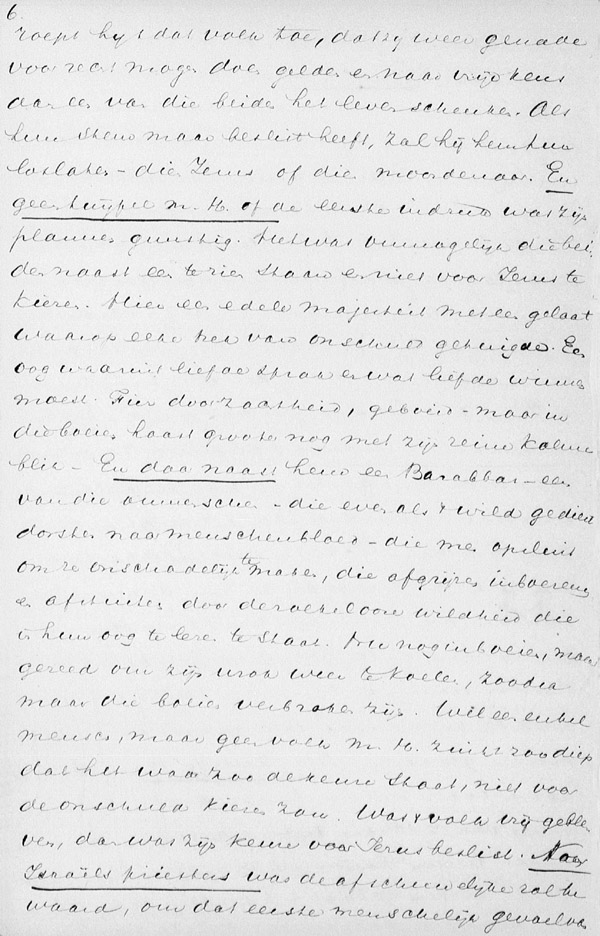 6.
roept hij dat volk toe, dat zij weer genade
voor recht mogen doen gelden en naar vrije keus
dan een van die beide het leven schenken. Als
hun stem maar beslist heeft, zal hij hem hun
loslaten - die Jezus of die moordenaar. En
geen twijfel m. H. of de eerste indruk was zijn
plannen gunstig. Het was onmogelijk die bei-
den naast een te zien staan en niet voor Jezus te
kiezen. Hier een edele majesteit met een gelaat
waarop elke trek van onschuld getuigde. Een
oog waaruit liefde sprak en wat liefde winnen
moest. Fier door zachtheid, geboeid - maar in
die boeien haast grooter nog met zijn reine kalme
blik - En daar naast hem een Barabbas - een
van die onmenschen - die even als 't wild gedierte
dorsten naar menschenbloed - die men opsluit
om ze onschadelijk te maken, die afgrijzen inboezemen
en afschrikken door de roekelooze wildheid die
in hun oog te lezen staat. Nu nog in boeien, maar
gereed om zijn wrok weer te koelen, zoodra
maar die boeien verbroken zijn. Wil een enkel
mensch, maar geen volk m. H. zinkt zoo diep
dat het waar zoo de keuze staat, niet voor
de onschuld kiezen zou. Was 't volk vrij geble-
ven, dan was zijn keus voor Jezus beslist. Maar
Israëls priesters was de afschuwelijke rol be-
waard, om dat eerste menschelijk gevoel van